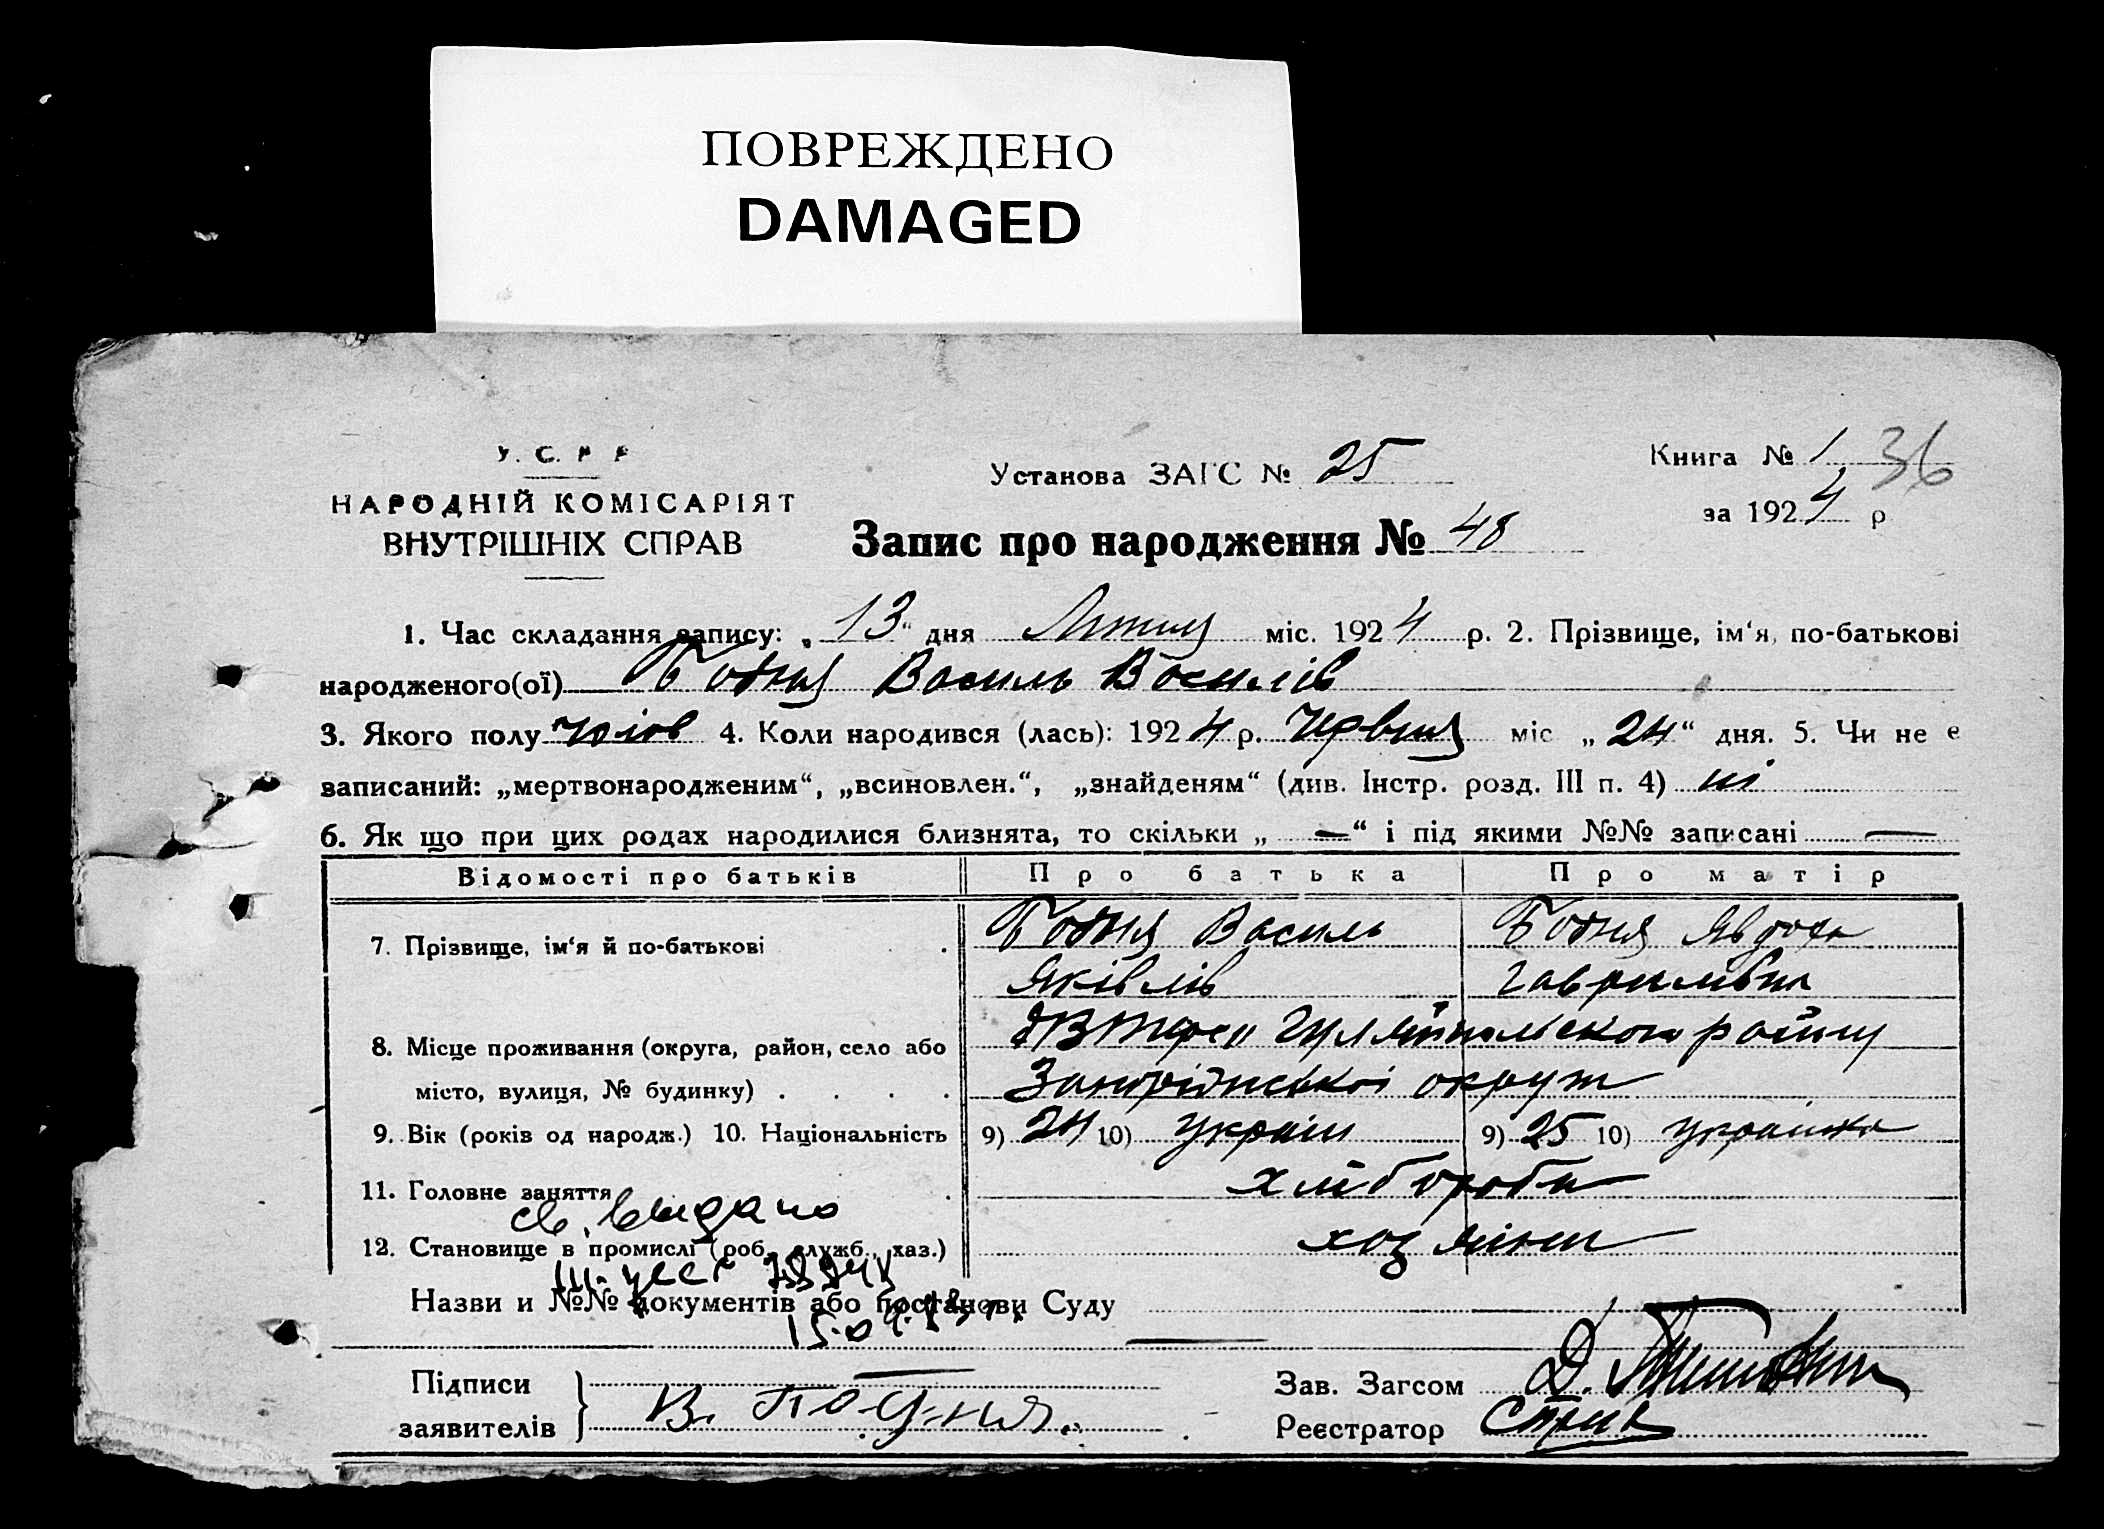 ПОВРЕЖДЕНО
DAMAGED
У. С. Р. Р.
НАРОДНІЙ КОМІСАРІЯТ
ВНУТРІШНІХ СПРАВ
Установа ЗАГС № 25
Книга № 1 36
за 1924 р
Запис про народження № 48
1. Час складання запису: „13“ дня міс. 1924 р. 2. Прізвище, ім‘я, по-батькові
народженого(ої) Бодня Василь Василів
3. Якого полу чолов 4. Коли народився (лась): 1924 р. Червня міс „24“ дня. 5. Чи не є
записаний: „мертвонародженим“, „всиновлен.“, „знайденям“ (див. Інстр. розд. III п. 4) ні
6. Як що при цих родах народилися близнята, то скільки „ — “ і під якими №№ записані —
Відомості про батьків Про батька Про матір
7. Прізвище, ім‘я й по-батькові . Бодня Василь Бодня Явдоха
Яківлів Гаврилівна
8. Місце проживання (округа, район, село або Гуляйпільского району
місто, вулиця, № будинку) . . . . Запорізської округи
9. Вік (років од народж.) 10. Національність 9) 24 10) україн 9) 25 10) українка
11. Головне заняття . хлібороби
св. выдано
12. Становище в промислі (роб., служб., хаз.) хозяїни
Назви и №№ документів або постанови Суду
—
Підписи
заявителів } В. Бодня.
Зав. Загсом
Реєстратор